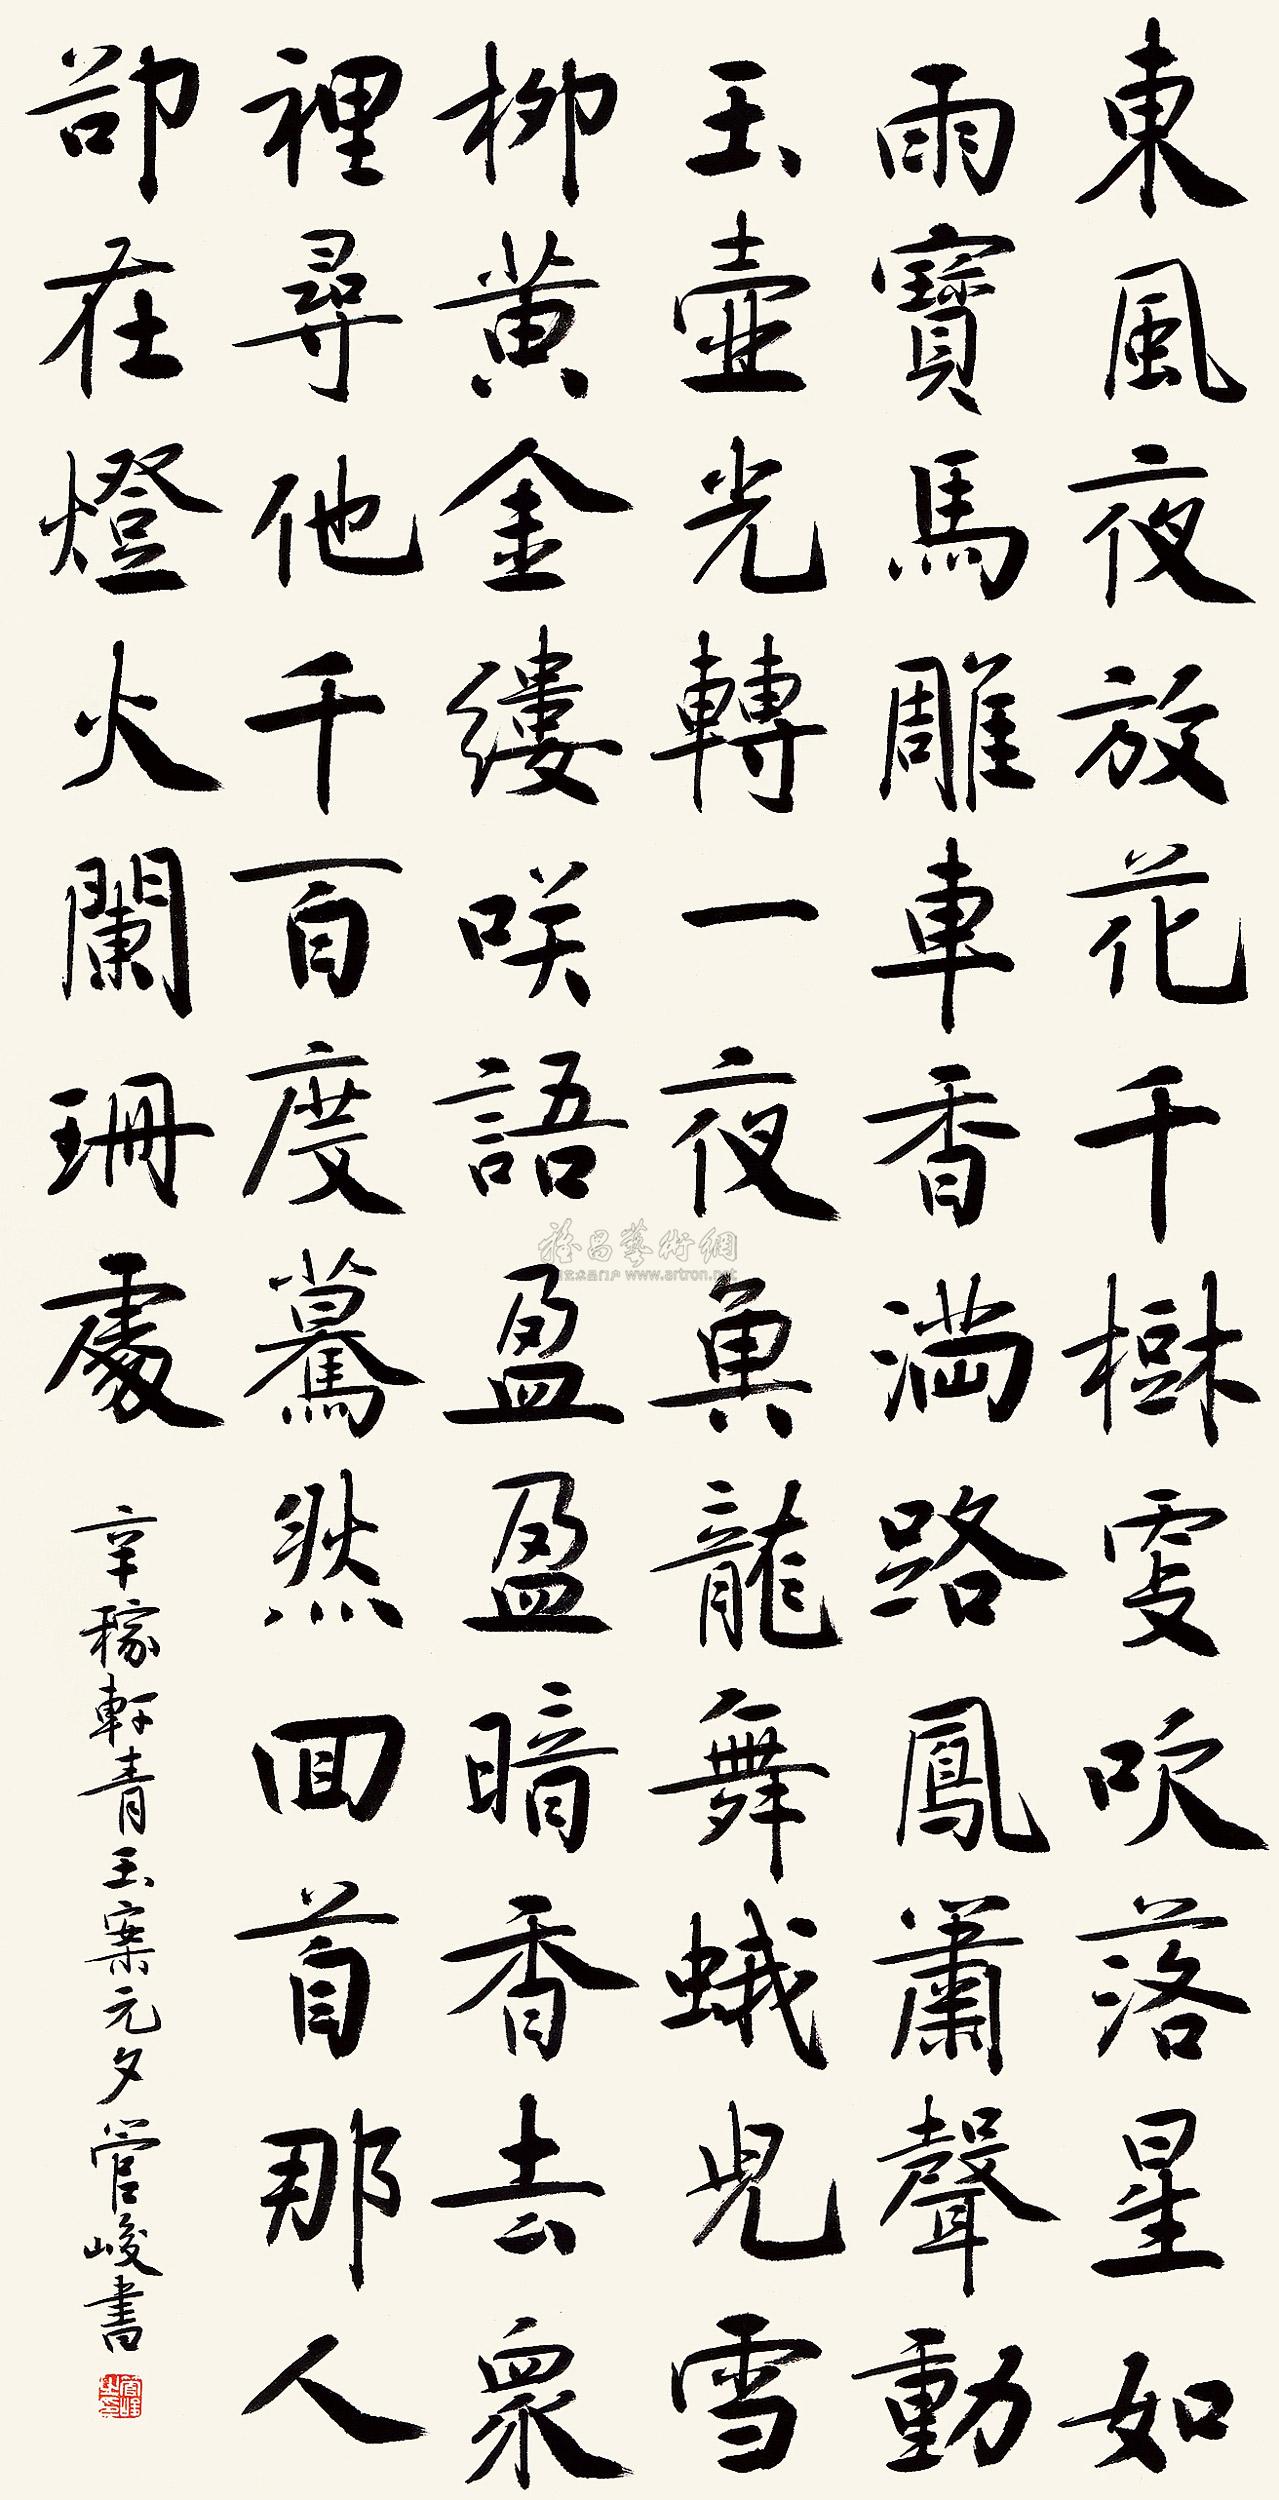 東風夜放花千樹更吹落星如
雨寶馬雕車香滿路鳳蕭聲動
玉壺光轉一夜魚龍舞蛾兒雪
柳黃金縷咲語盈盈暗香去衆
裡尋他千百度驀然回首那人
卻在燈火闌珊處
辛稼軒青玉案元夕管峻書
雅昌藝術網
www.artron.net